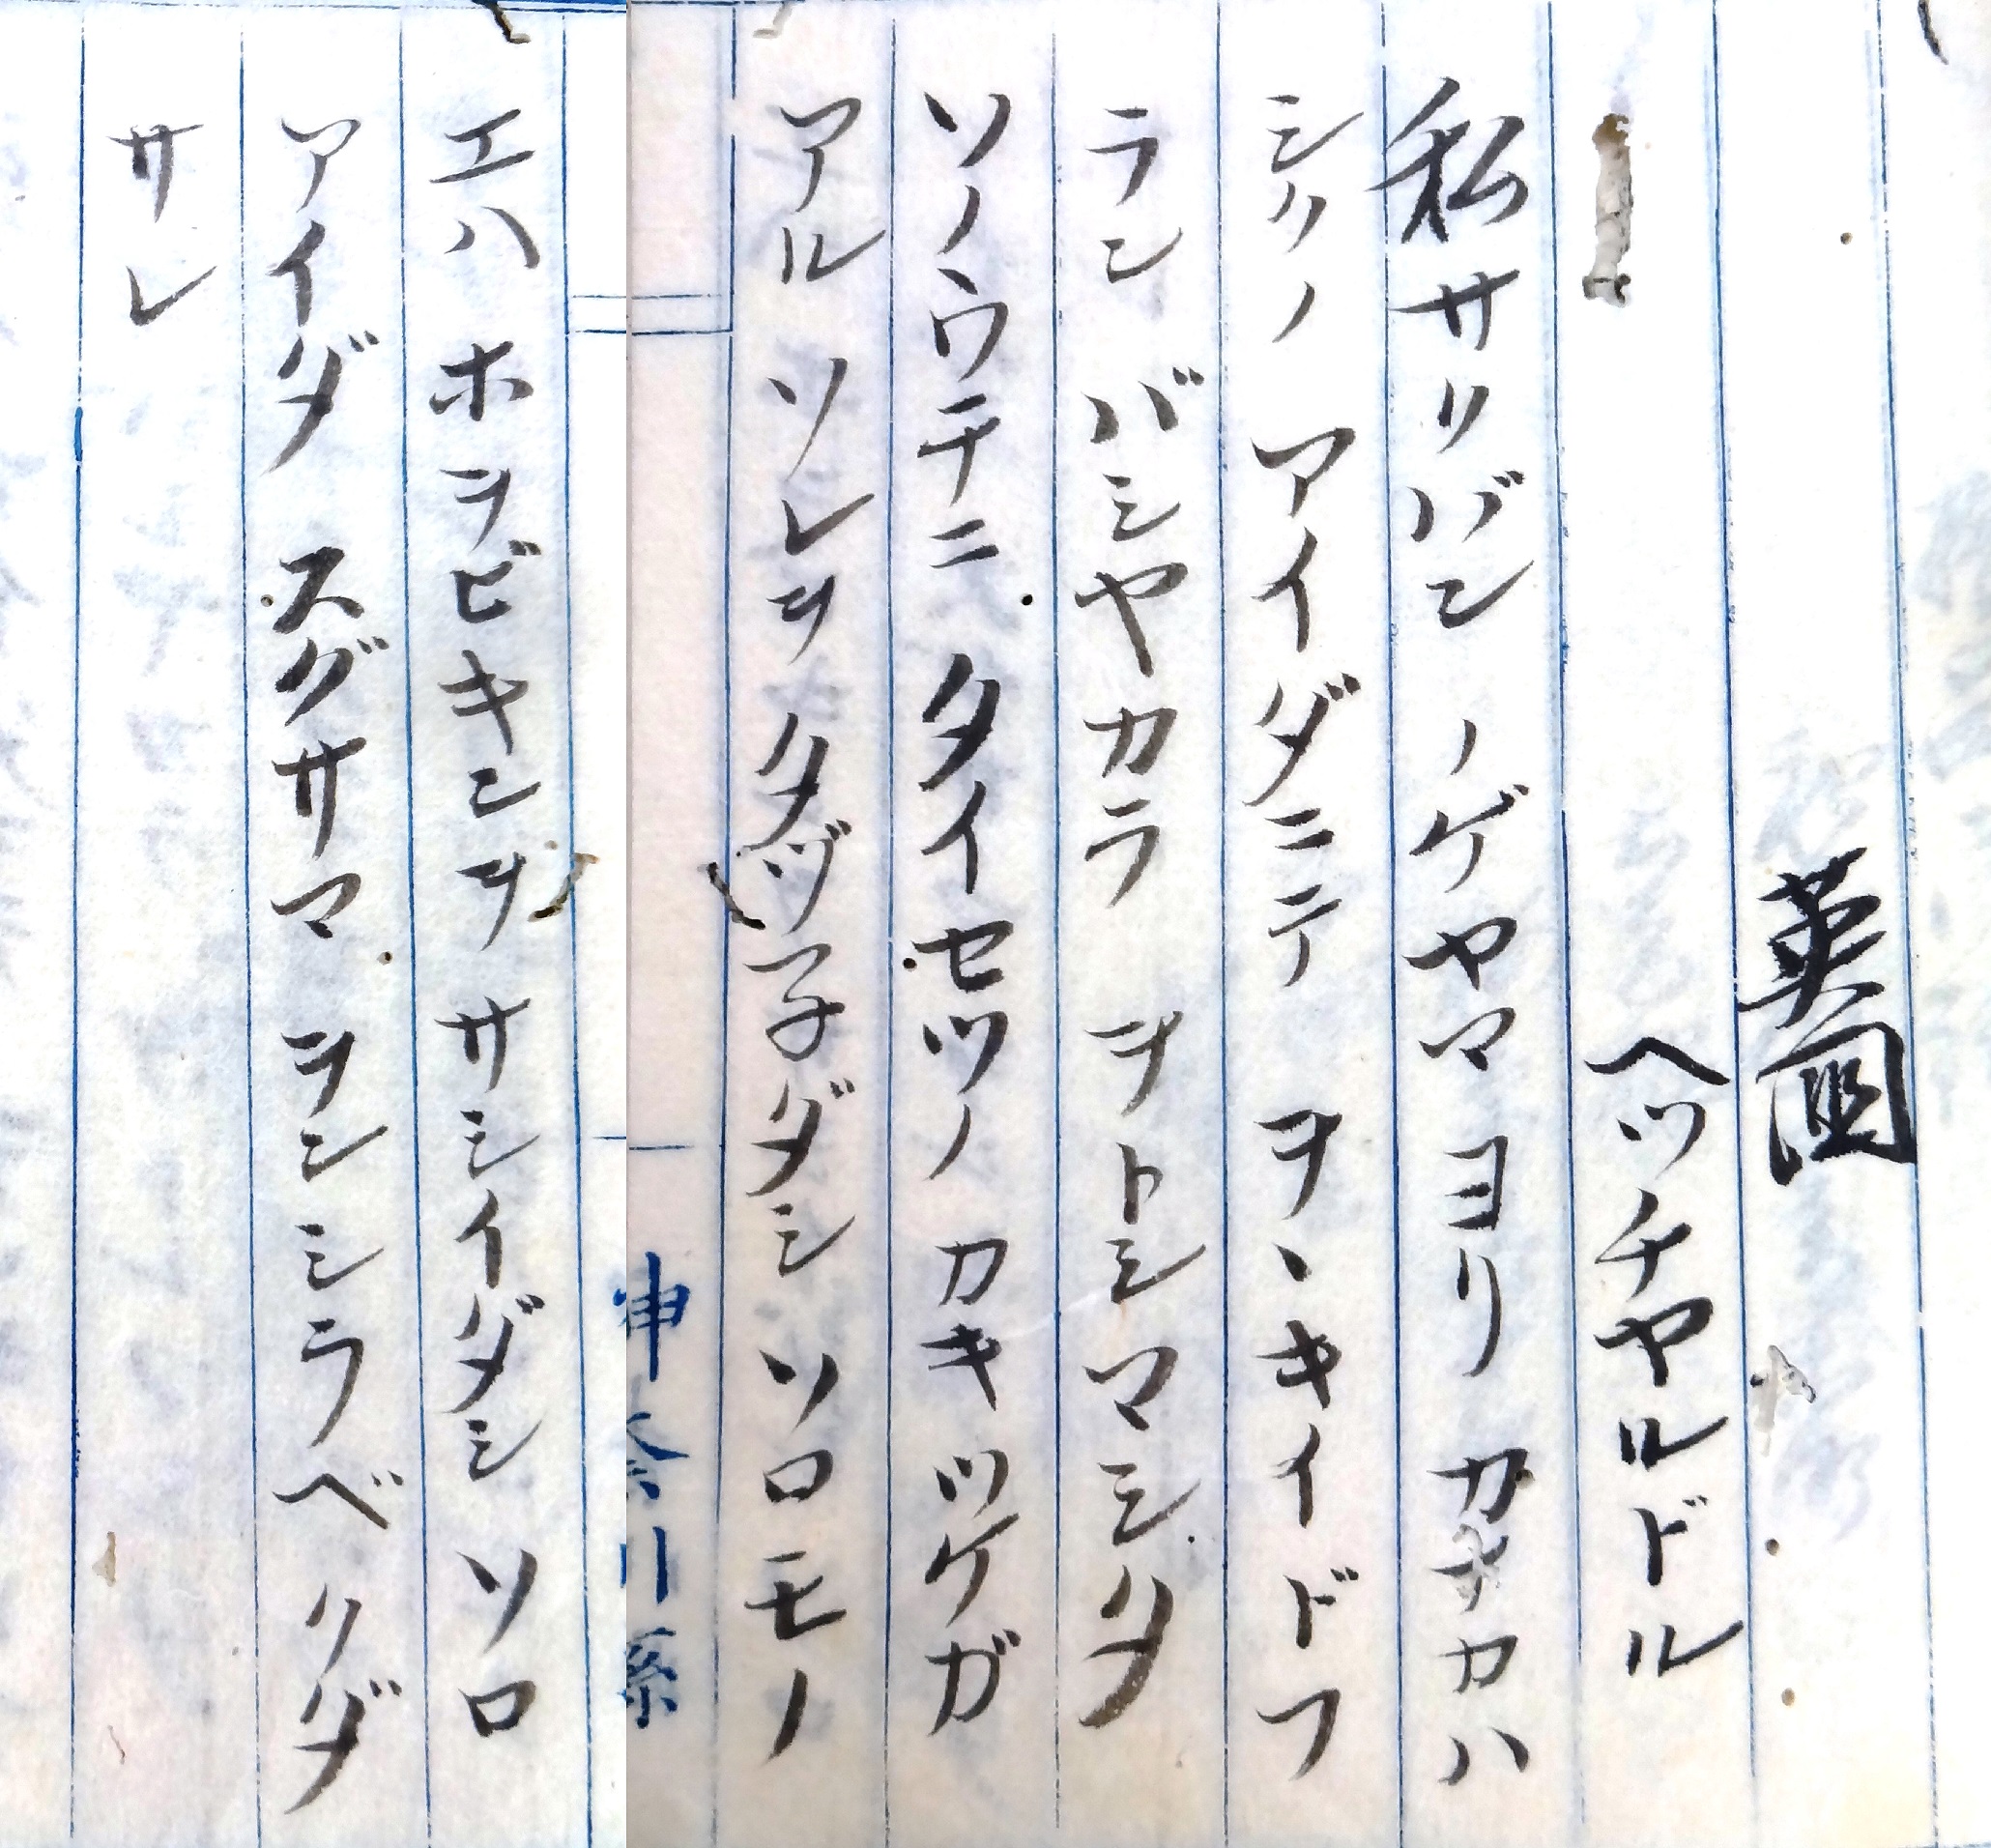 英國
ヘツチヤルドル
私サクバン ノゲヤマ ヨリ カナカハ
シクノ アイダニテ ヲヽキイドフ
ラン バシヤカラ ヲトシマシタ
ソノウチニ タイセツノ カキツケガ
アル ソレヲ タヅ子ダシ ソロモノ
神奈川縣
エハ ホヲビキンヲ サシイダシ ソロ
アイダ スグサマ ヲンシラベ クダ
サレ